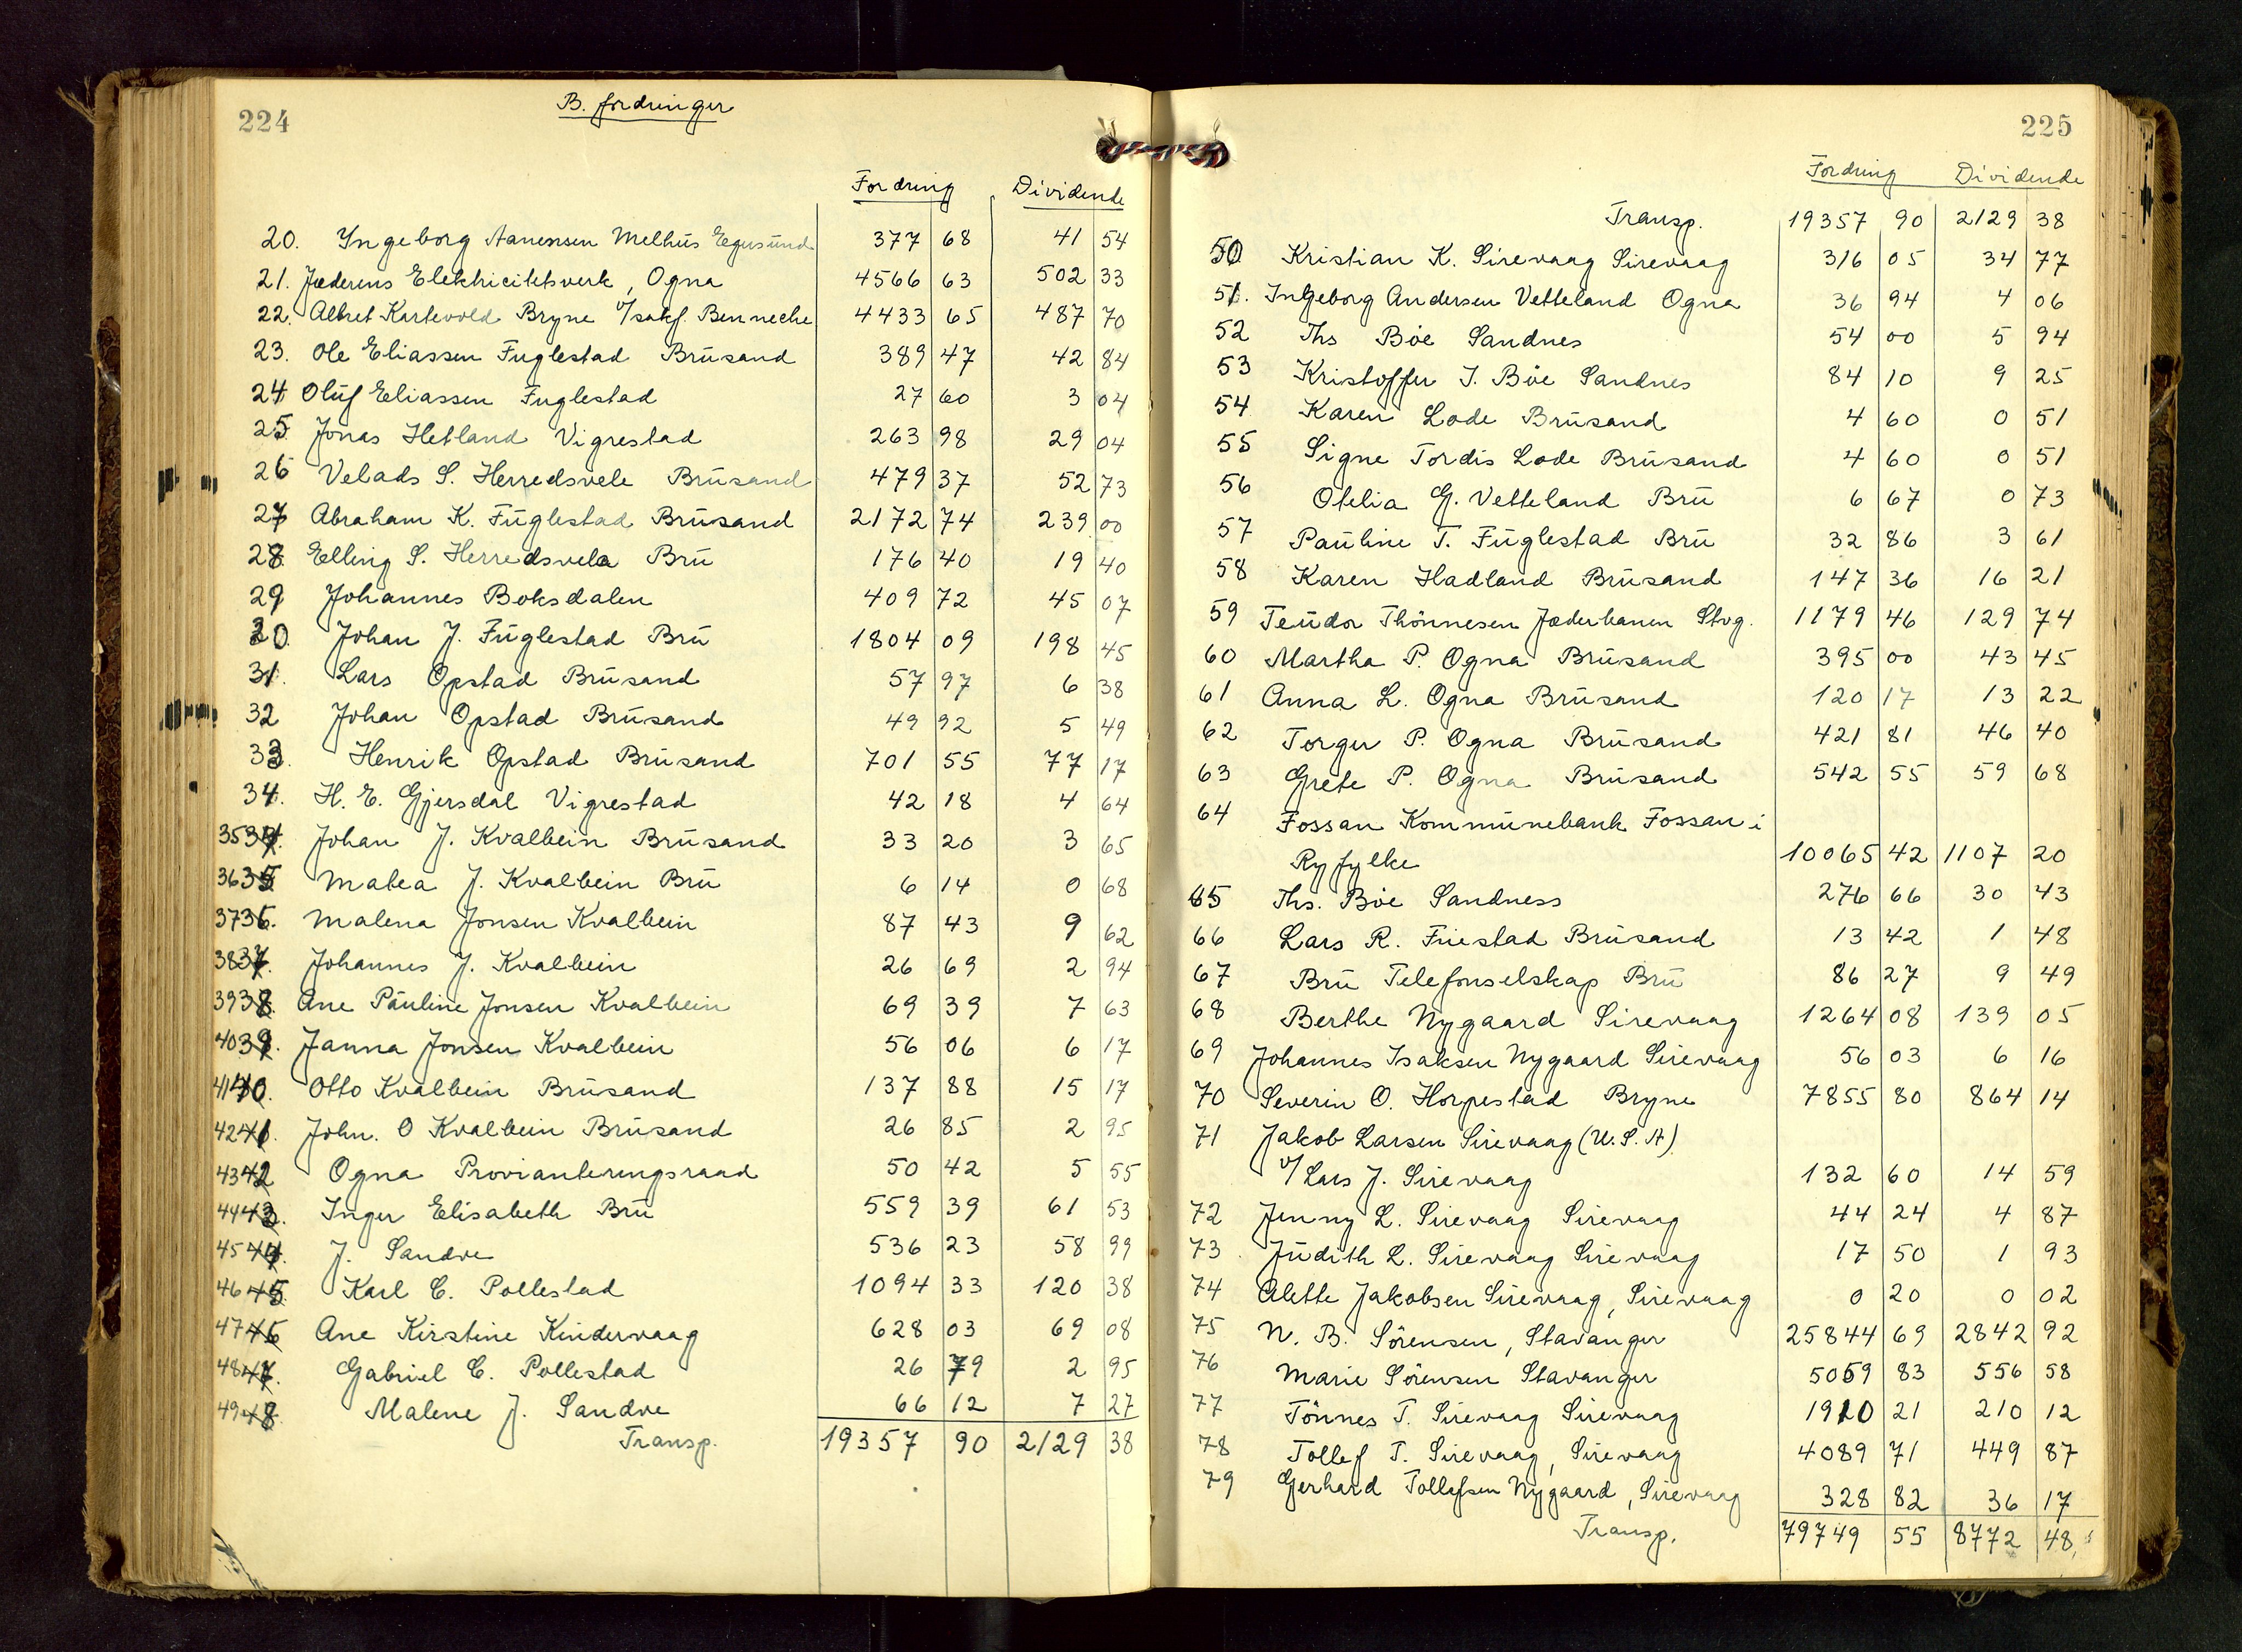 224
B. fordringer
Fordring Dividende
20. Ingeborg Aanensen Melhus Egersund 377 68 41 54
21. Jæderens Elektricitetsverk, Ogna 4566 63 502 33
22. Albret Kartevold Bryne v/sakf. Benneche 4433 65 487 70
23. Ole Eliassen Fuglestad Brusand 389 47 42 84
24 Oluf Eliassen Fuglestad 27 60 3 04
25 Jonas Hetland Vigrestad 263 98 29 04
26 Velads S. Herredsvele Brusand 479 37 52 73
27 Abraham K. Fuglestad Brusand 2172 74 239 00
28. Elling S. Herredsvela Bru 176 40 19 40
29 Johannes Boksdalen 409 72 45 07
30. Johan J. Fuglestad Bru 1804 09 198 45
31. Lars Opstad Brusand 57 97 6 38
32 Johan Opstad Brusand 49 92 5 49
33. Henrik Opstad Brusand 701 55 77 17
34. H. E. Gjersdal Vigrestad 42 18 4 64
35 34. Johan J. Kvalbein Brusand 33 20 3 65
36 35 Matea J. Kvalbein Bru 6 14 0 68
37 36. Malena Jonsen Kvalbein 87 43 9 62
38 37. Johannes J. Kvalbein 26 69 2 94
39 38. Ane Pauline Jonsen Kvalbein 69 39 7 63
40 39. Janna Jonsen Kvalbein 56 06 6 17
41 40. Otto Kvalbein Brusand 137 88 15 17
42 41. John. O Kvalbein Brusand 26 85 2 95
43 42 Ogna Provianteringsraad 50 42 5 55
44 43. Inger Elisabeth Bru 559 39 61 53
45 44. J. Sandve 536 23 58 99
46 45. Karl C. Pollestad 1094 33 120 38
47 46 Ane Kirstine Kindervaag 628 03 69 08
48 47. Gabriel C. Pollestad 26 79 2 95
49 48. Malene J. Sandve 66 12 7 27
Transp. 19357 90 2129 38
225
Fordring Dividende
Transp. 19357 90 2129 38
50 Kristian K. Sirevaag Sirevaag 316 05 34 77
51. Ingeborg Andersen Vetteland Ogna 36 94 4 06
52 Ths Bøe Sandnes 54 00 5 94
53 Kristoffer T. Bøe Sandnes 84 10 9 25
54 Karen Lode Brusand 4 60 0 51
55 Signe Tordis Lode Brusand 4 60 0 51
56 Otelia G. Vetteland Bru 6 67 0 73
57 Pauline T. Fuglestad Bru 32 86 3 61
58 Karen Hadland Brusand 147 36 16 21
59 Teudor Thönnesen Jæderbanen Stvg. 1179 46 129 74
60 Martha P. Ogna Brusand 395 00 43 45
61 Anna L. Ogna Brusand 120 17 13 22
62 Torger P. Ogna Brusand 421 81 46 40
63 Grete P. Ogna Brusand 542 55 59 68
64 Fossan Kommunebank Fossan i
Ryfylke 10065 42 1107 20
65 Ths. Bøe Sandness 276 66 30 43
66 Lars R. Friestad Brusand 13 42 1 48
67 Bru Telefonselskap Bru 86 27 9 49
68 Berthe Nygaard Sirevaag 1264 08 139 05
69 Johannes Isaksen Nygaard Sirevaag 56 03 6 16
70 Severin O. Horpestad Bryne 7855 80 864 14
71 Jakob Larsen Sirevaag (U.S.A)
v/ Lars J. Sirevaag 132 60 14 59
72 Jenny L. Sirevaag Sirevaag 44 24 4 87
73. Judith L. Sirevaag Sirevaag 17 50 1 93
74 Alette Jakobsen Sirevaag, Sirevaag 0 20 0 02
75 N. B. Sörensen, Stavanger 25844 69 2842 92
76 Marie Sörensen Stavanger 5059 83 556 58
77 Tönnes T. Sirevaag Sirevaag 1910 21 210 12
78 Tollef T. Sirevaag, Sirevaag 4089 71 449 87
79 Gerhard Tollefsen Nygaard, Sirevaag 328 82 36 17
Transp. 79749 55 8772 48